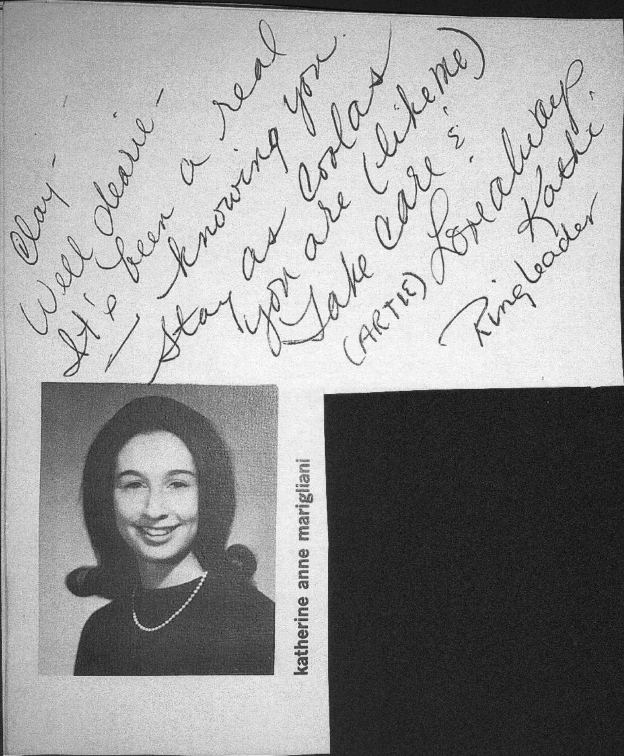 Clay -
Well dearie -
It's been a real
— knowing you.
Stay as cool as
you are (like me)
Take care &
(ARTIE) Love always
Kathi
Ringleader
katherine anne marigliani